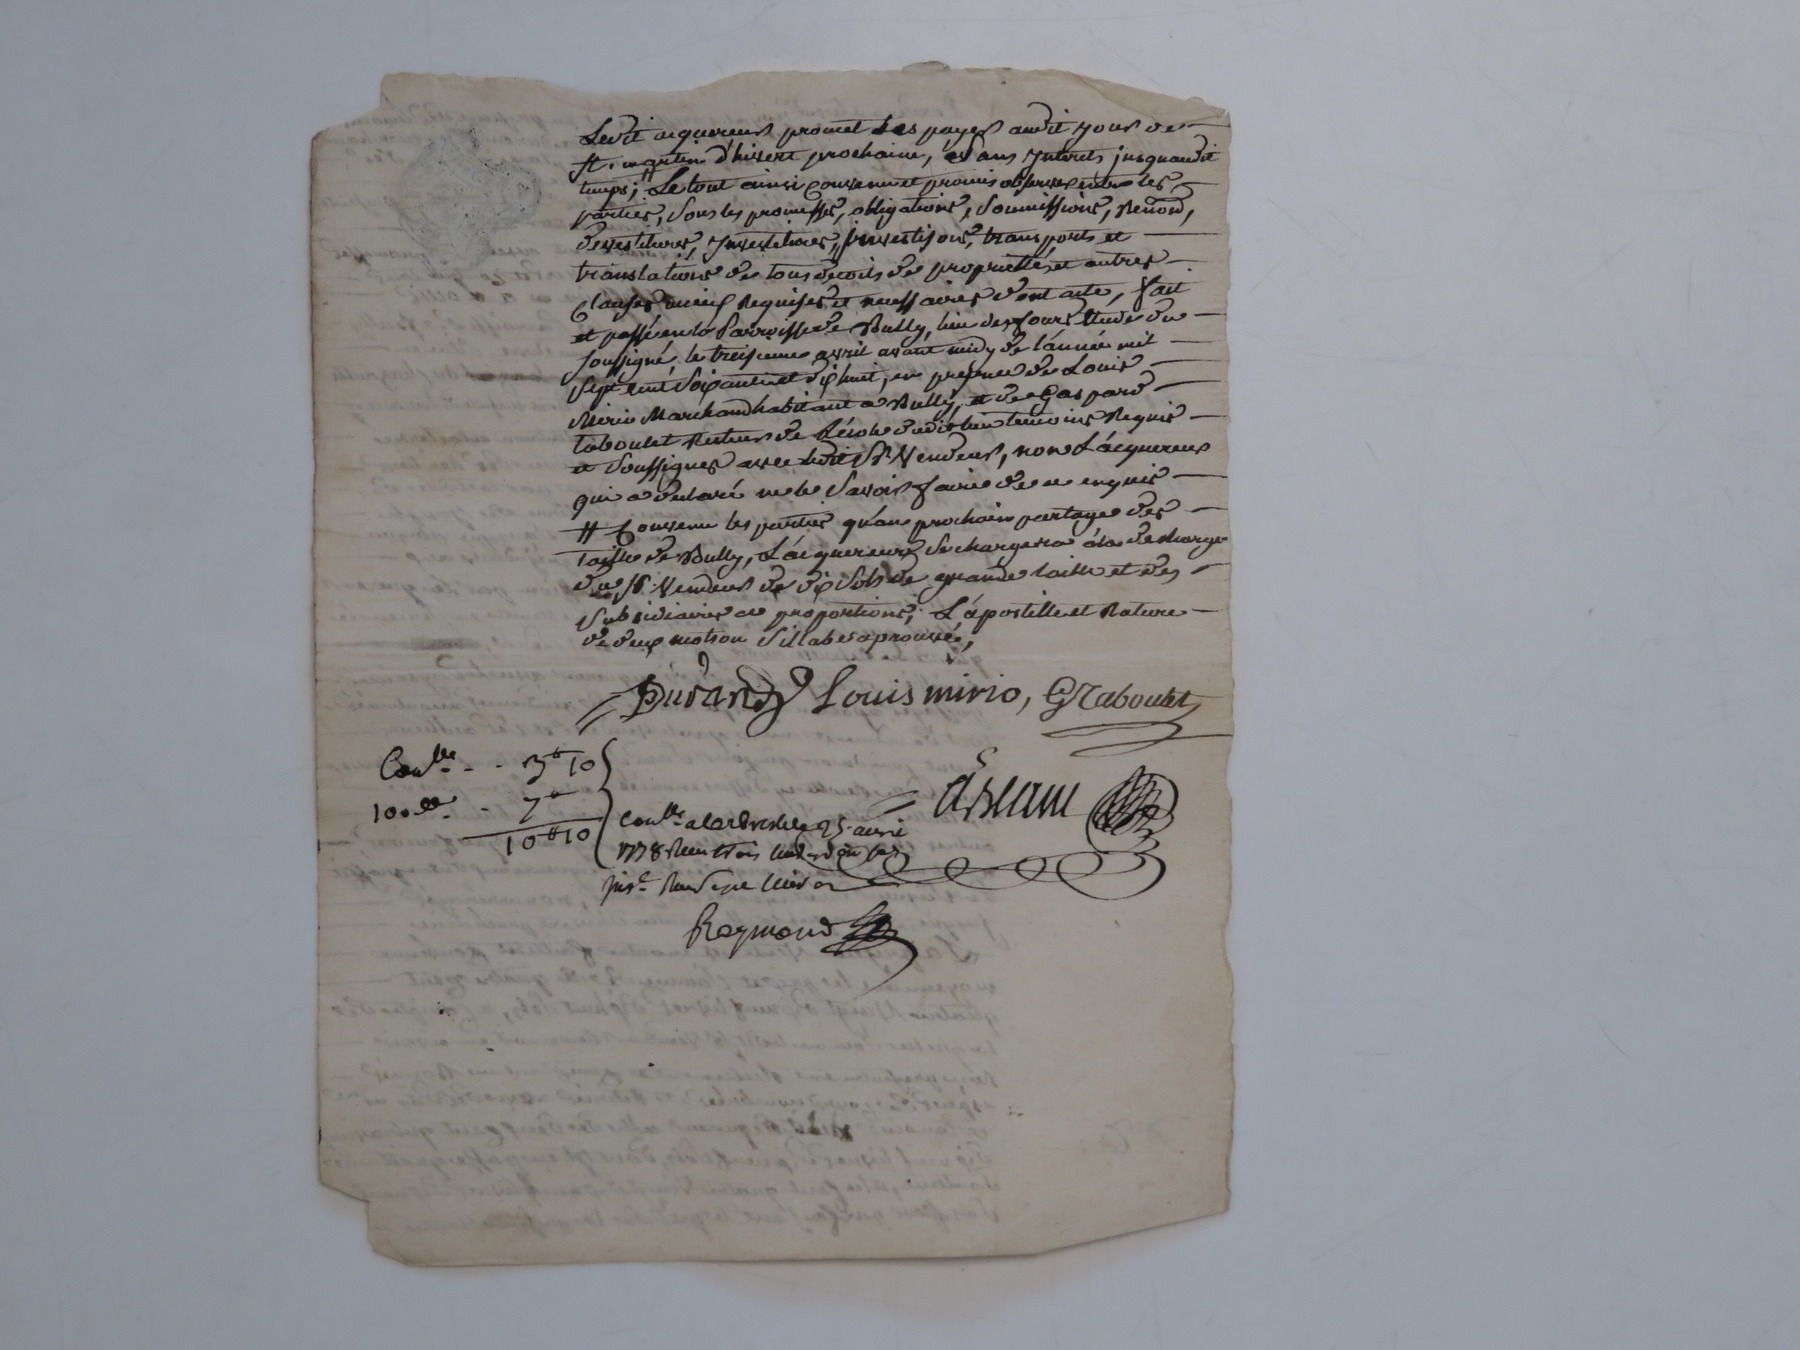 Ledit acquereur promet les payer audit jour de
St. martin d'hivert prochaine, sans jnterets jusquaudit
temps; Le tout ainsi convenu et promis observer entre les
parties, sous les promesses, obligations, soumissions, Renon,
devestitures, jnvestitures, transports et
translations de tous droits de propriettés et autres
clauses mieux Requises et necessaires dont acte, fait
et passé en la Parroisse de Bully, lieu des fours Etude du
soussigné, le treisieme avril avant midy de lannée mil
sept cent soixante et dix huit, en presence de Louis
Mirio Marchand habitant a Bully, et de Gaspard
taboulet Recteur de L'école dudit lieu temoins Requis
et soussignés avec ledit Sr. Vendeur, non L'acquereur
qui a declaré ne le savoir faire de ce enquis
# Convenu les parties qu'au prochain partage des
Taille de Bully, L'acquereur se chargera a la decharge
du Sr. Vendeur de dix sols de grande taille et des
subsidiaires a proportions; L'apostille et Rature
de deux mots ou sillabes aprouvé,
Durand Louis mirio, G Taboulet
Conlle. - - 3# 10
100e. - 7#
10# 10
Conlle. a Larbresle le 25 avril
1778 Reçu trois livres dix sols
Raymond